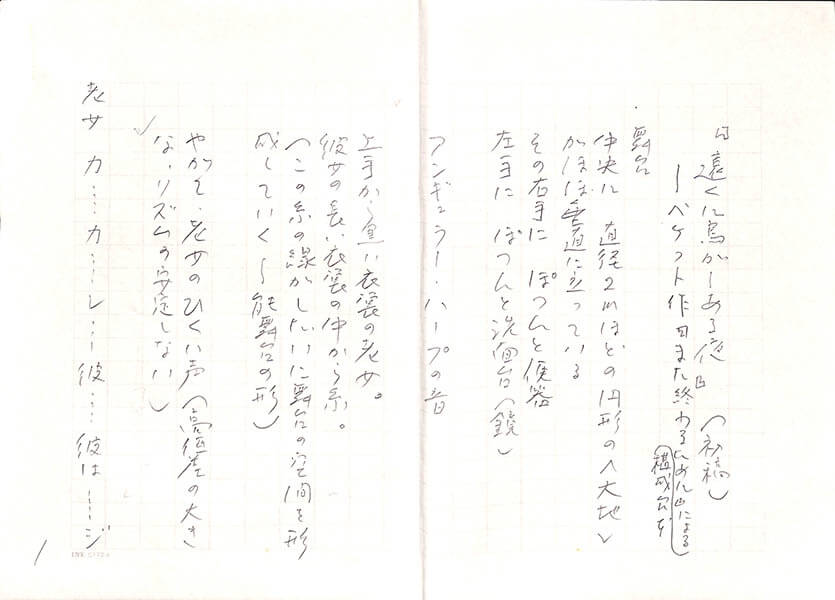 『遠くに鳥が―ある夜』（初稿）
―ベケット作『また終わるために』による
構成台本
舞台
中央に 直径2mほどの円形の〈大地〉
がほぼ垂直に立っている
その右手に ぽつんと便器
左手に ぽつんと洗面台（鏡）
アンギュラー・ハープの音
上手から黒い衣裳の老女。
彼女の長い衣裳の中から糸。
（この糸の線がしだいに舞台の空間を形
成していく〜能舞台の形）
やがて、老女のひくい声（高低差の大き
な、リズムの安定しない）
老女 カ……カ……レ……彼……彼は……ジ
1